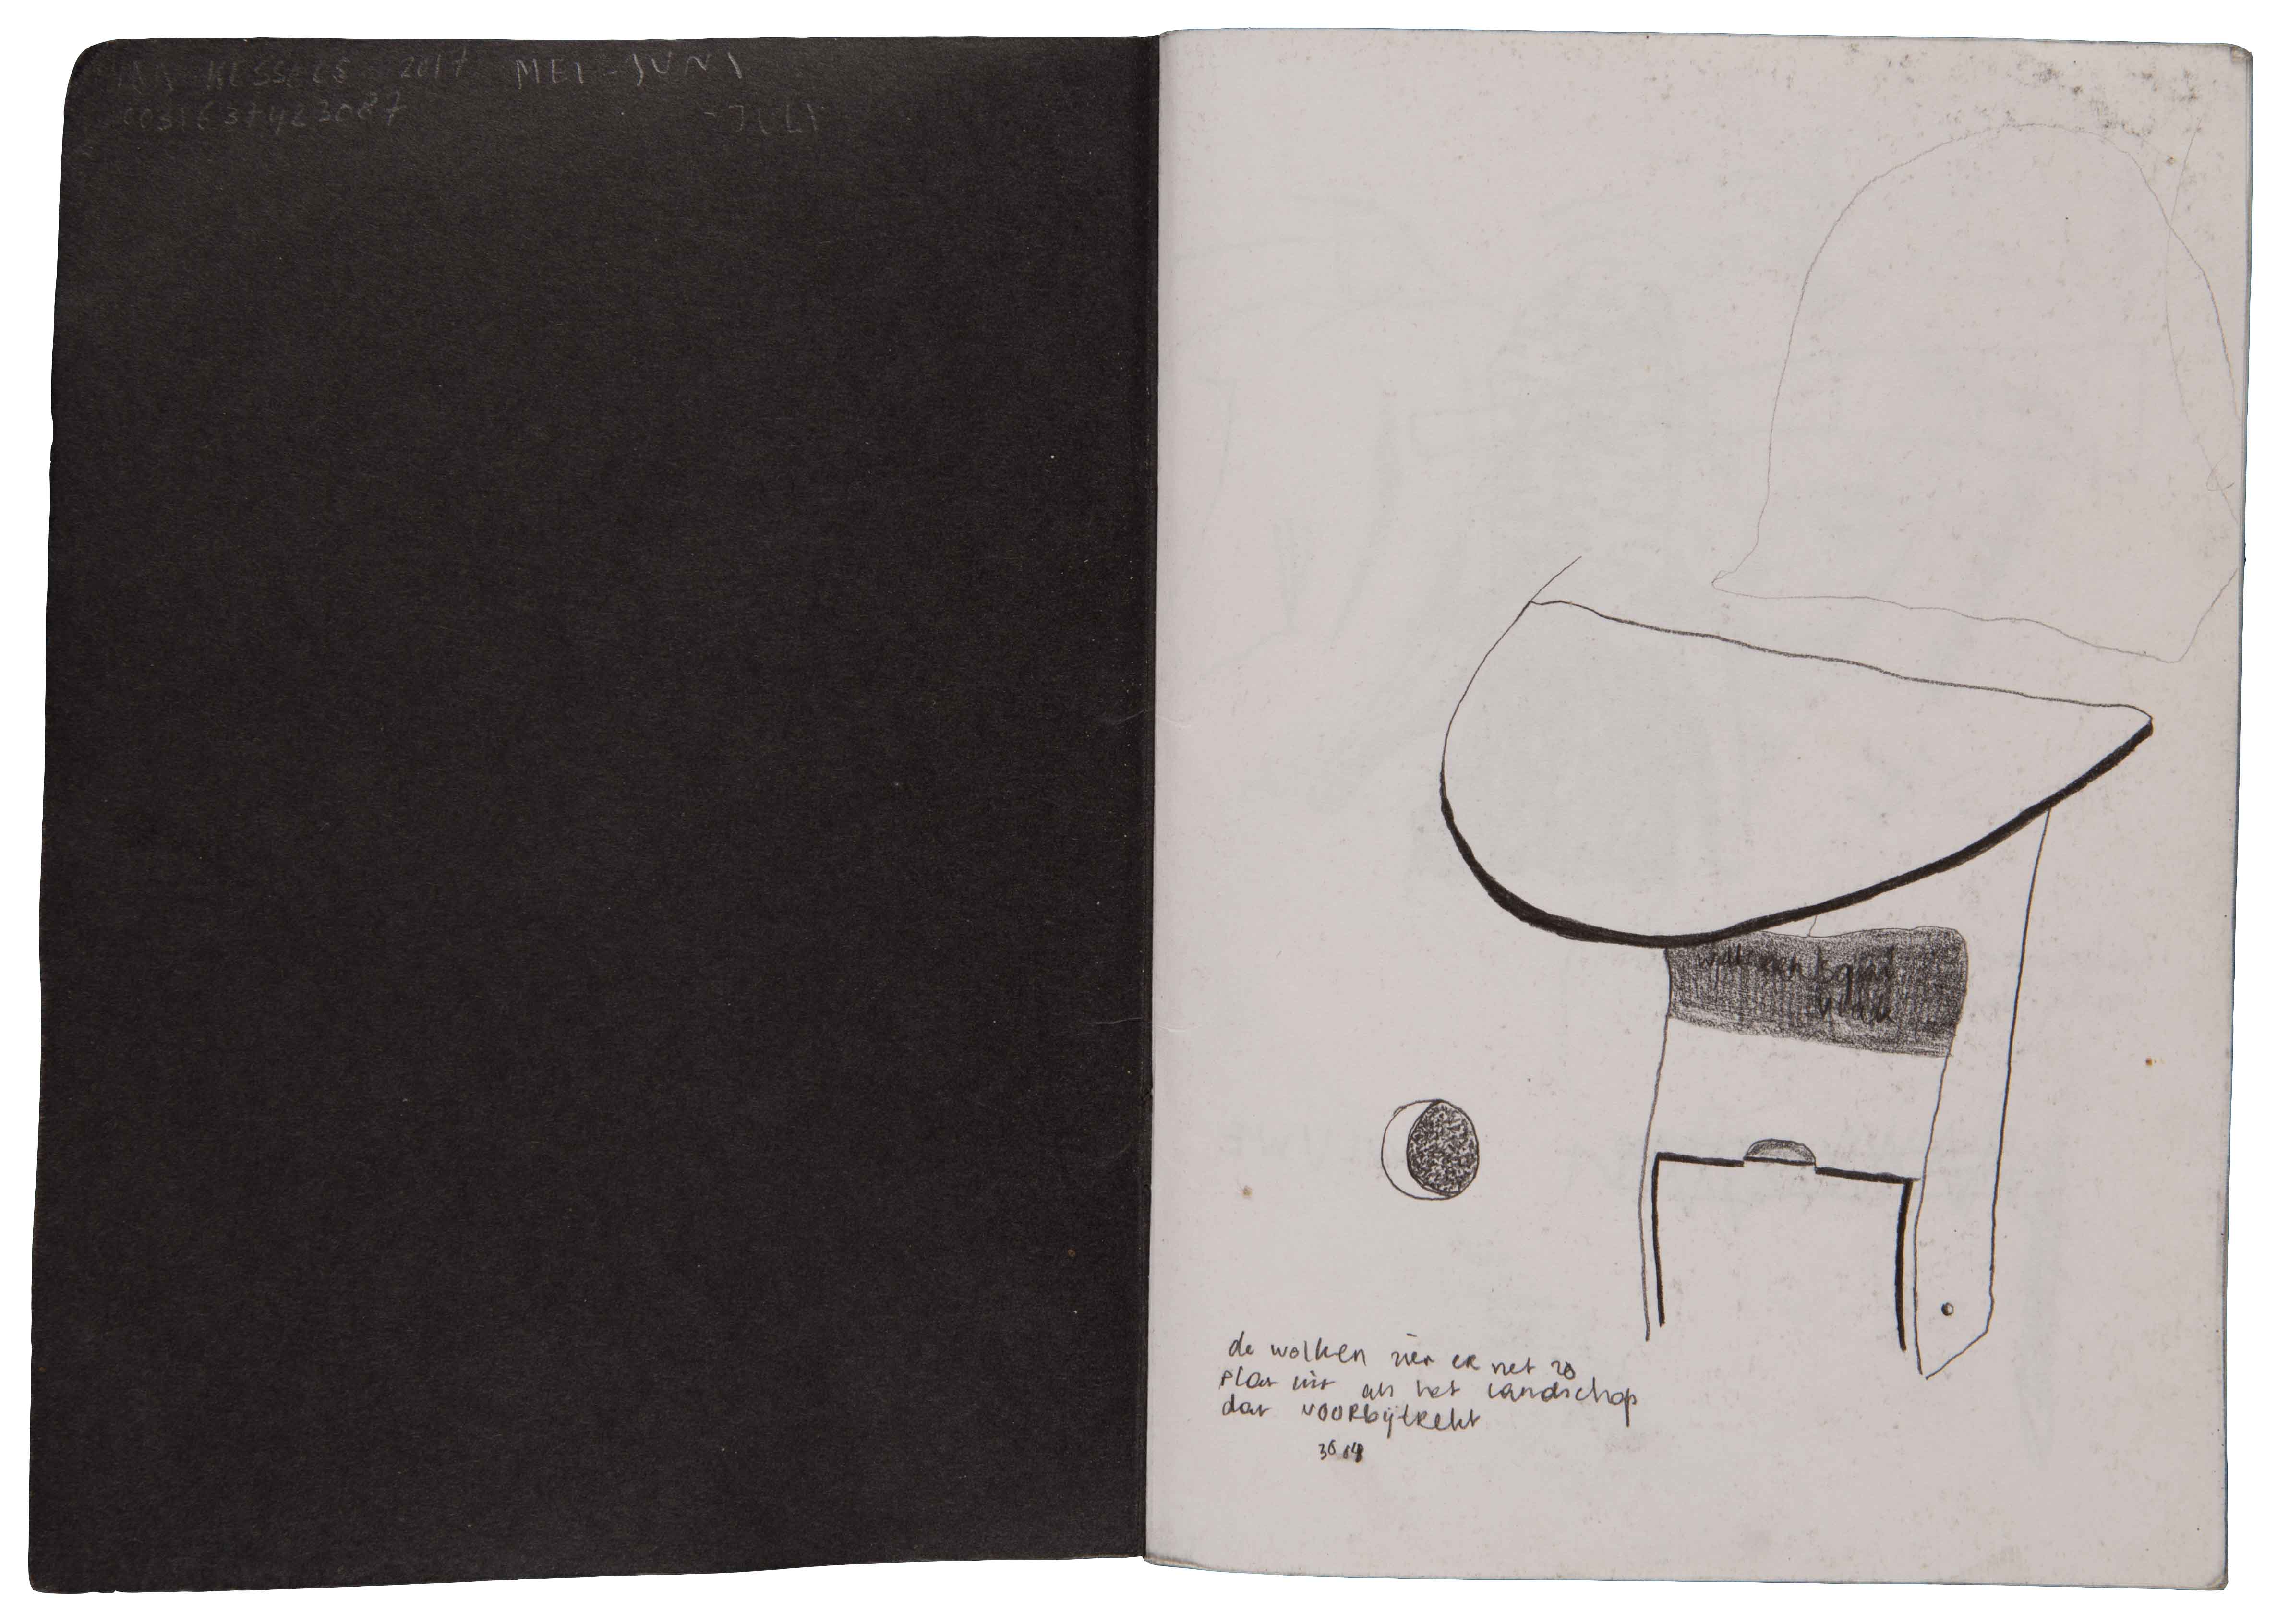 KESSELS 2017 MEI-JUNI
0031637423087 -JULI
de wolken zien er net zo
plat uit als het landschap
dat voorbijtrekt